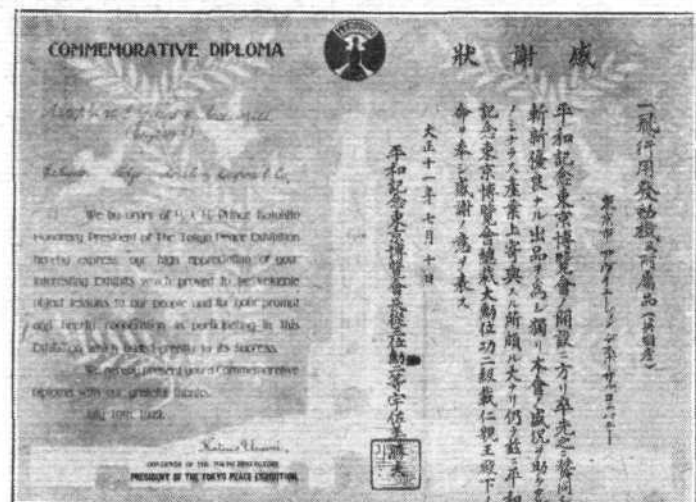 COMMEMORATIVE DIPLOMA
We by order of H. I. H. Prince Kotohito
Honorary President of The Tokyo Peace Exhibition
hereby express our high appreciation of your
interesting Exhibits which proved to be valuable
object lessons to our people and for your prompt
and hearty cooperation in participating in this
Exhibition which added greatly to its success.
We hereby present you a Commemorative
Diploma with our grateful thanks.
July 10th, 1922.
Katsuo Usami,
PRESIDENT OF THE TOKYO PEACE EXHIBITION.
感謝狀
一飛行用發動機及附屬品(英國産)
東京市
平和記念東京博覽會ノ開設ニ方リ卒先之ニ賛同
斬新優良ナル出品ヲ為シ獨リ本會ノ盛況ヲ助ケ
ノミナラス産業上寄與スル所頗ル大ナリ仍テ茲ニ平和
記念東京博覽會總裁大勲位功二級載仁親王殿下
命ヲ奉シ感謝ノ意ヲ表ス
大正十一年七月十日
平和記念東京博覽會長從三位勲一等宇佐美勝夫